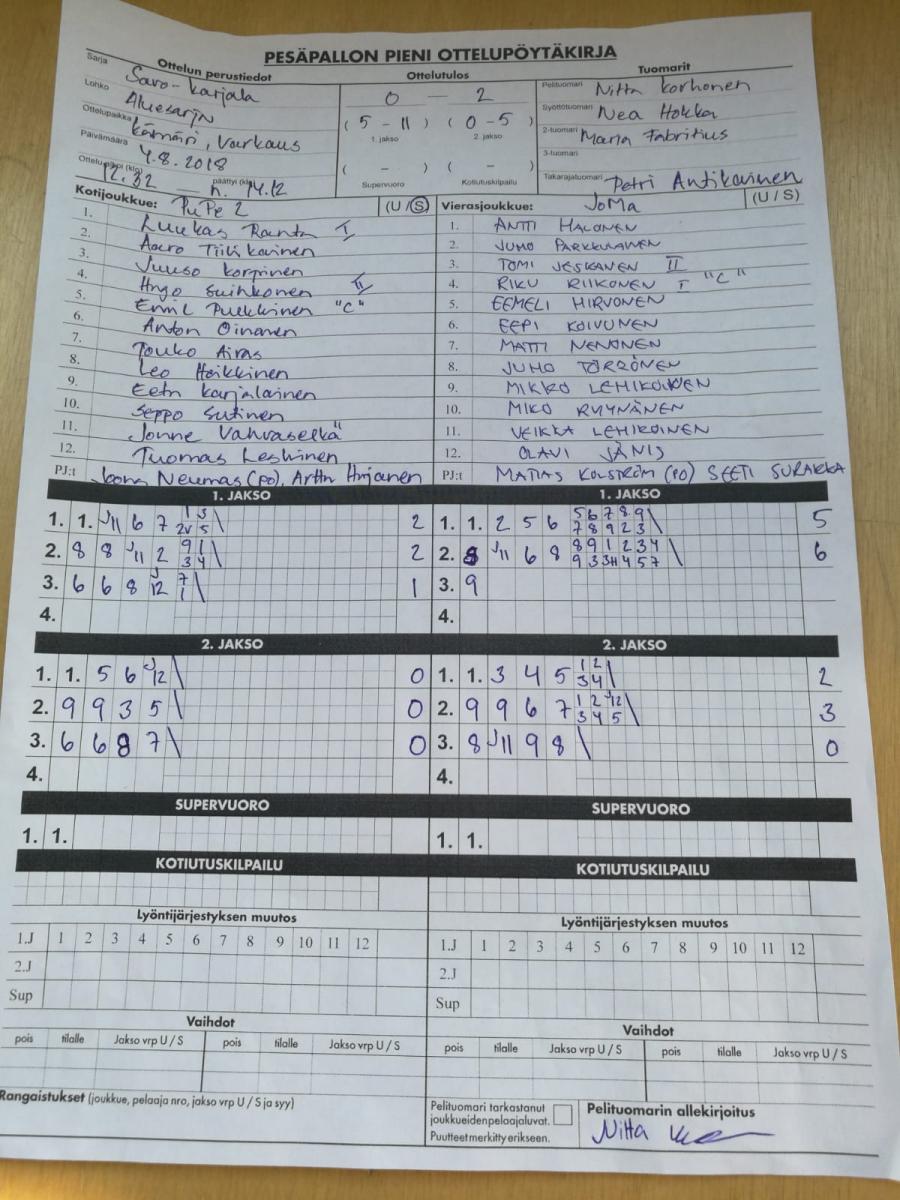 PESÄPALLON PIENI OTTELUPÖYTÄKIRJA
Ottelun perustiedot Ottelutulos Tuomarit
Sarja Savo-Karjala 0 – 2 Pelituomari Niitta Korhonen
Lohko Aluesarja (5 – 11) (0 – 5) Syöttötuomari Nea Hokka
1. jakso 2. jakso
Ottelupaikka Kämäri, Varkaus 2-tuomari Maria Fabritius
Päivämäärä 4.8.2018 ( – ) ( – ) 3-tuomari
Ottelu alkoi (klo) 12.32 – päättyi (klo) 14.12 Supervuoro Kotiutuskilpailu Takarajatuomari Petri Antikainen
Kotijoukkue: PuPe 2 (U / S) Vierasjoukkue: JoMa (U / S)
1. Luukas Ranta I 1. ANTTI HALONEN
2. Aaro Tiilikainen 2. JUHO PARKKULAINEN
3. Juuso Korpinen 3. TOMI JESKANEN II
4. Hugo Suihkonen II 4. RIKU RIIKONEN I "C"
5. Emil Pulkkinen "C" 5. EEMELI HIRVONEN
6. Anton Oinonen 6. EEPI KOIVUNEN
7. Touko Airas 7. MATTI NENONEN
8. Leo Heikkinen 8. JUHO TÖRRÖNEN
9. Eetu Karjalainen 9. MIKKO LEHIKOINEN
10. Seppo Sutinen 10. MIKO RYYNÄNEN
11. Jonne Vahvaselkä 11. VEIKKA LEHIKOINEN
12. Tuomas Leskinen 12. OLAVI JÄNIS
PJ:t Neumas (PO), Arttu PJ:t MATIAS (PO) SEETI SURAKKA
1. JAKSO 1. JAKSO
1. 1. J11 6 7 1 3 \ 2 1. 1. 2 5 6 5 6 7 8 9 \ 5
2V 5 7 8 9 2 3
2. 8 8 J11 2 9 1 \ 2 2. 8 J11 6 8 8 9 1 2 3 4 \ 6
3 4 9 3 3H 4 5 7
3. 6 6 8 J12 7 \ 1 3. 9
1
4. 4.
2. JAKSO 2. JAKSO
1. 1. 5 6 J12 \ 0 1. 1. 3 4 5 1 2 \ 2
3 4
2. 9 9 3 5 \ 0 2. 9 9 6 7 1 2 J12 \ 3
3 4 5
3. 6 6 8 7 \ 0 3. 8 J11 9 8 \ 0
4. 4.
SUPERVUORO SUPERVUORO
1. 1. 1. 1.
KOTIUTUSKILPAILU KOTIUTUSKILPAILU
Lyöntijärjestyksen muutos Lyöntijärjestyksen muutos
1.J 1 2 3 4 5 6 7 8 9 10 11 12 1.J 1 2 3 4 5 6 7 8 9 10 11 12
2.J 2.J
Sup Sup
Vaihdot Vaihdot
pois tilalle Jakso vrp U / S pois tilalle Jakso vrp U / S pois tilalle Jakso vrp U / S pois tilalle Jakso vrp U / S
Rangaistukset (joukkue, pelaaja nro, jakso vrp U / S ja syy)
Pelituomari tarkastanut joukkueiden pelaajaluvat. Puutteet merkitty erikseen.
Pelituomarin allekirjoitus
Niitta